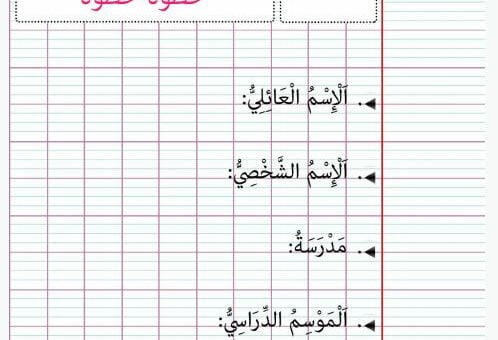 خطوة خطوة
. اَلْإِسْمُ الْعَائِلِيُّ:
. اَلْإِسْمُ الشَّخْصِيُّ:
. مَدْرَسَةُ:
. اَلْمَوْسِمُ الدِّرَاسِيُّ: